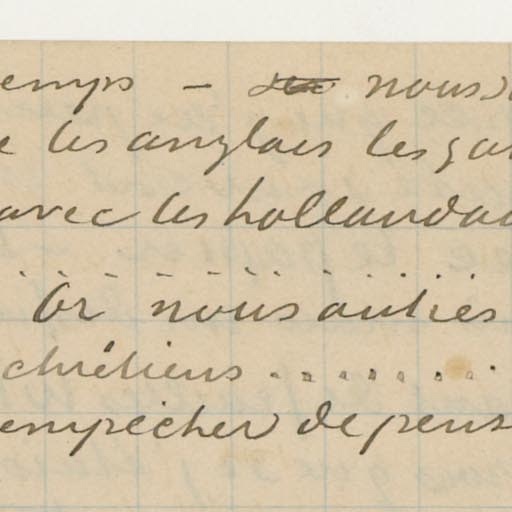 emps - nous
les anglais les
avec les hollandai
Or nous autres
chrétiens ........
empêcher de pens